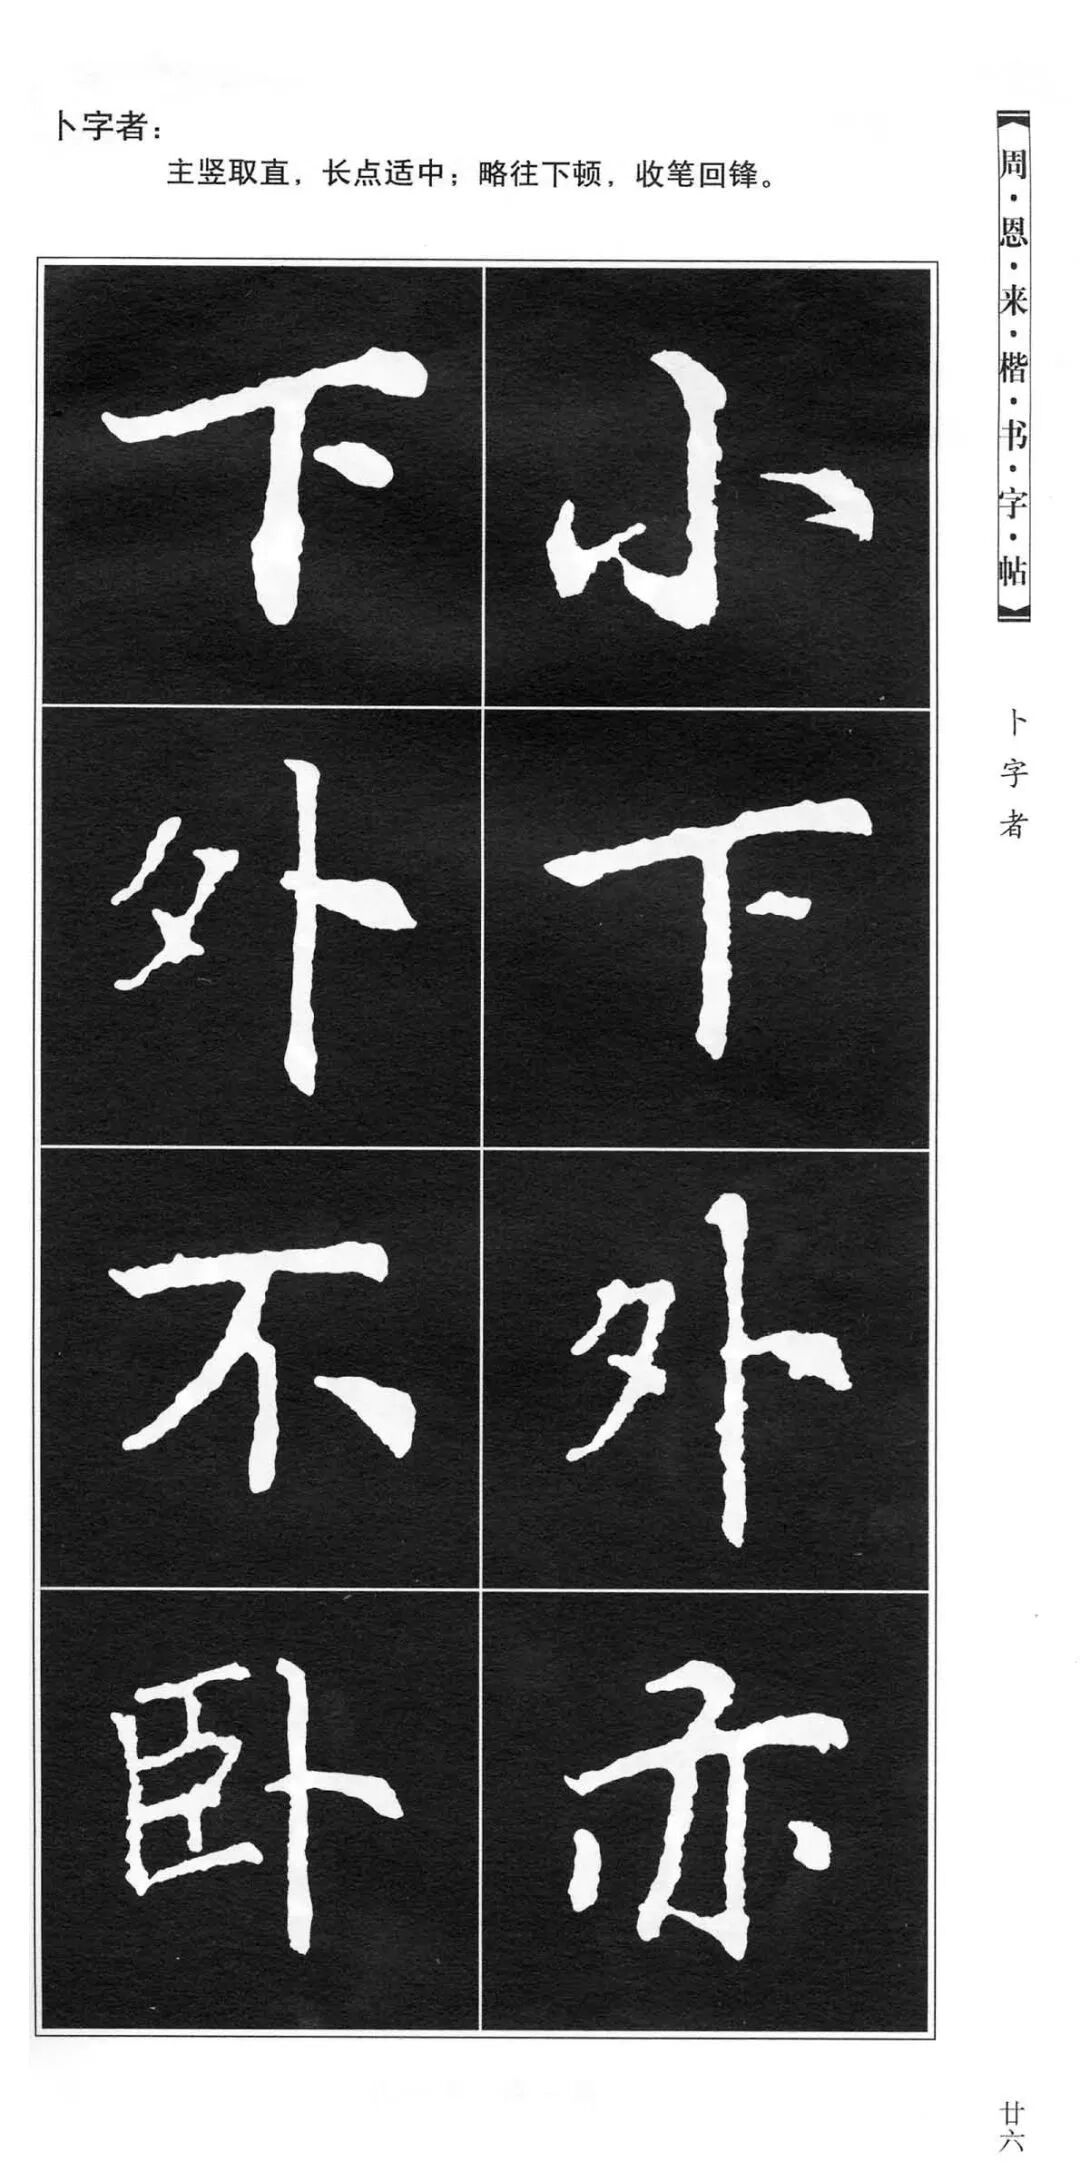 卜字者：
主竖取直，长点适中；略往下顿，收笔回锋。
小
下
外
亦
下
外
不
卧
周·恩·来·楷·书·字·帖
卜字者
廿六